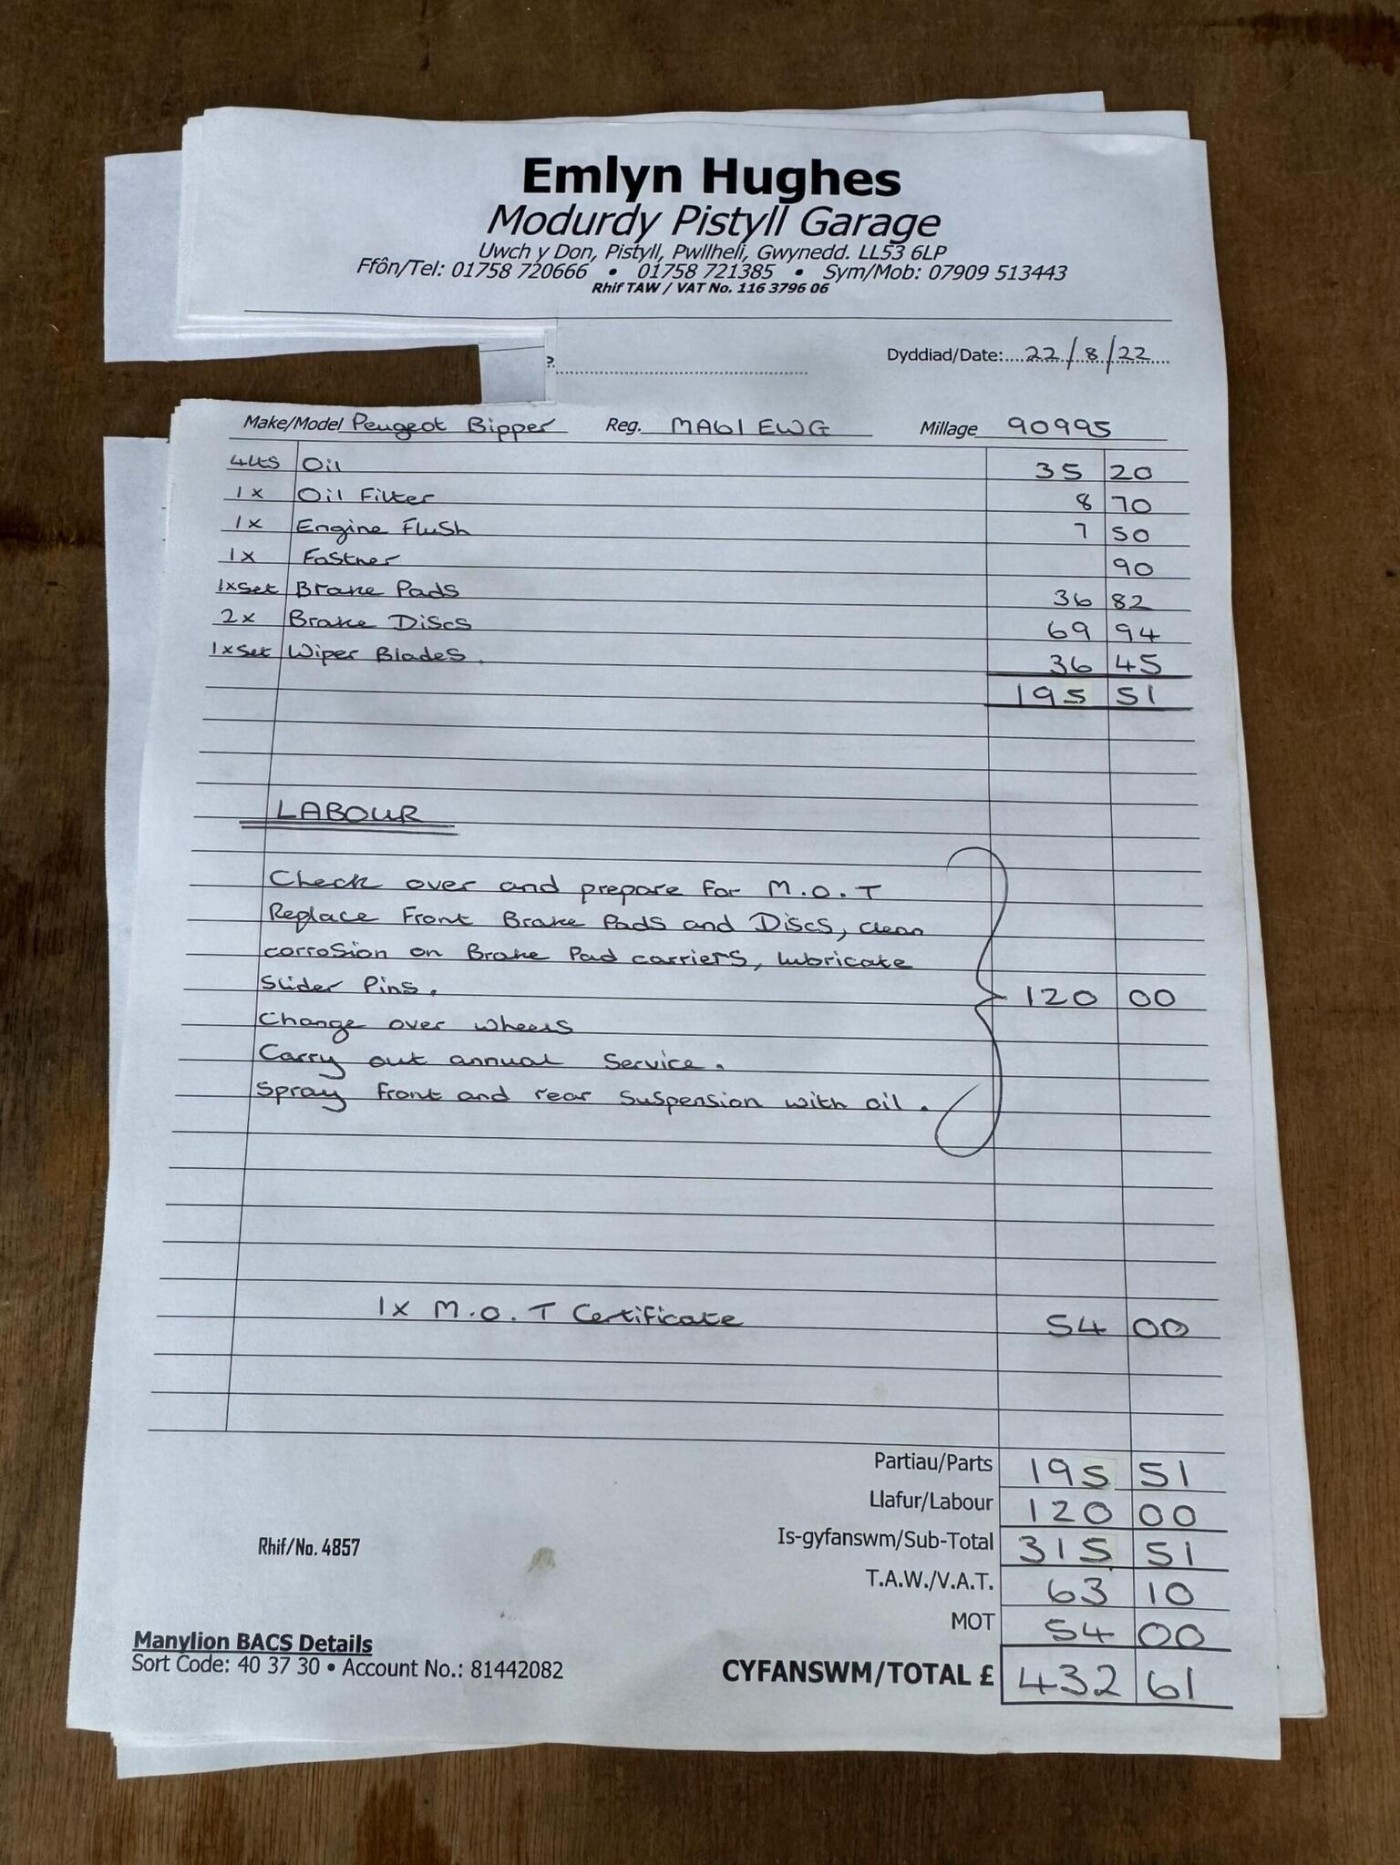 Emlyn Hughes
Modurdy Pistyll Garage
Uwch y Don, Pistyll, Pwllheli, Gwynedd. LL53 6LP
Ffôn/Tel: 01758 720666 • 01758 721385 • Sym/Mob: 07909 513443
Rhif TAW / VAT No. 116 3796 06
Dyddiad/Date: 22/8/22
Make/Model Peugeot Bipper Reg. MA61 EWG Millage 90995
4Lts Oil 35 20
1x Oil Filter 8 70
1x Engine Flush 7 50
1x Fastner 90
1xSet Brake Pads 36 82
2x Brake Discs 69 94
1xSet Wiper Blades. 36 45
195 51
LABOUR
Check over and prepare for M.O.T
Replace Front Brake Pads and Discs, clean
corrosion on Brake Pad carriers, lubricate
Slider Pins. 120 00
Change over wheels
Carry out annual Service.
Spray front and rear suspension with oil.
1x M.O.T Certificate 54 00
Partiau/Parts 195 51
Llafur/Labour 120 00
Is-gyfanswm/Sub-Total 315 51
T.A.W./V.A.T. 63 10
MOT 54 00
CYFANSWM/TOTAL £ 432 61
Rhif/No. 4857
Manylion BACS Details
Sort Code: 40 37 30 • Account No.: 81442082